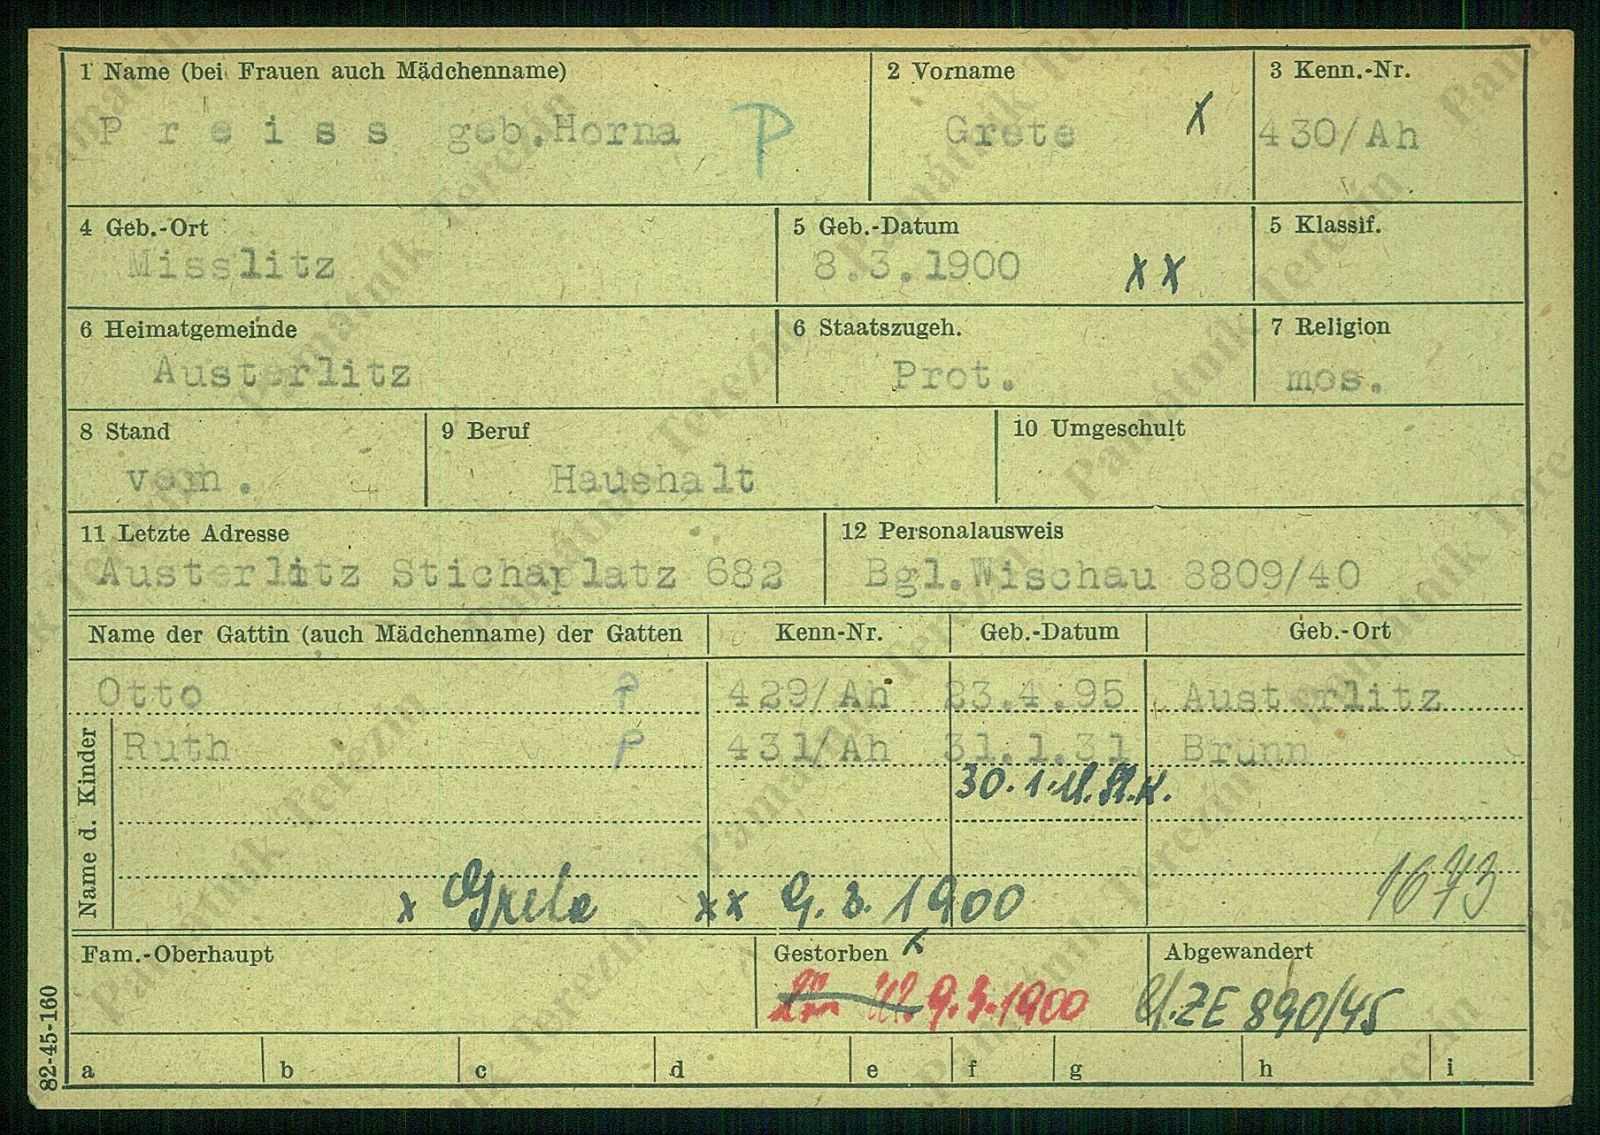 1 Name (bei Frauen auch Mädchenname)
2 Vorname
3 Kenn.-Nr.
Preiss geb. Horna P
Grete x
430/Ah
4 Geb.-Ort
5 Geb.-Datum
5 Klassif.
Misslitz
8.3.1900 xx
6 Heimatgemeinde
6 Staatszugeh.
7 Religion
Austerlitz
Prot.
mos.
8 Stand
9 Beruf
10 Umgeschult
Haushalt
11 Letzte Adresse
12 Personalausweis
Austerlitz Stichaplatz 682
Bgl.Wischau 8809/40
Name der Gattin (auch Mädchenname) der Gatten
Kenn-Nr.
Geb.-Datum
Geb.-Ort
Otto P 429/Ah 23.4.95 Austerlitz
Name d. Kinder
Ruth P 431/Ah 31.1.31 Brünn
30.1.
x Grete xx 9.3.1900
1673
Fam.-Oberhaupt
Gestorben
Abgewandert
9.3.1900
ZE 890/45
82-45-160
a b c d e f g h i
Památník Terezín